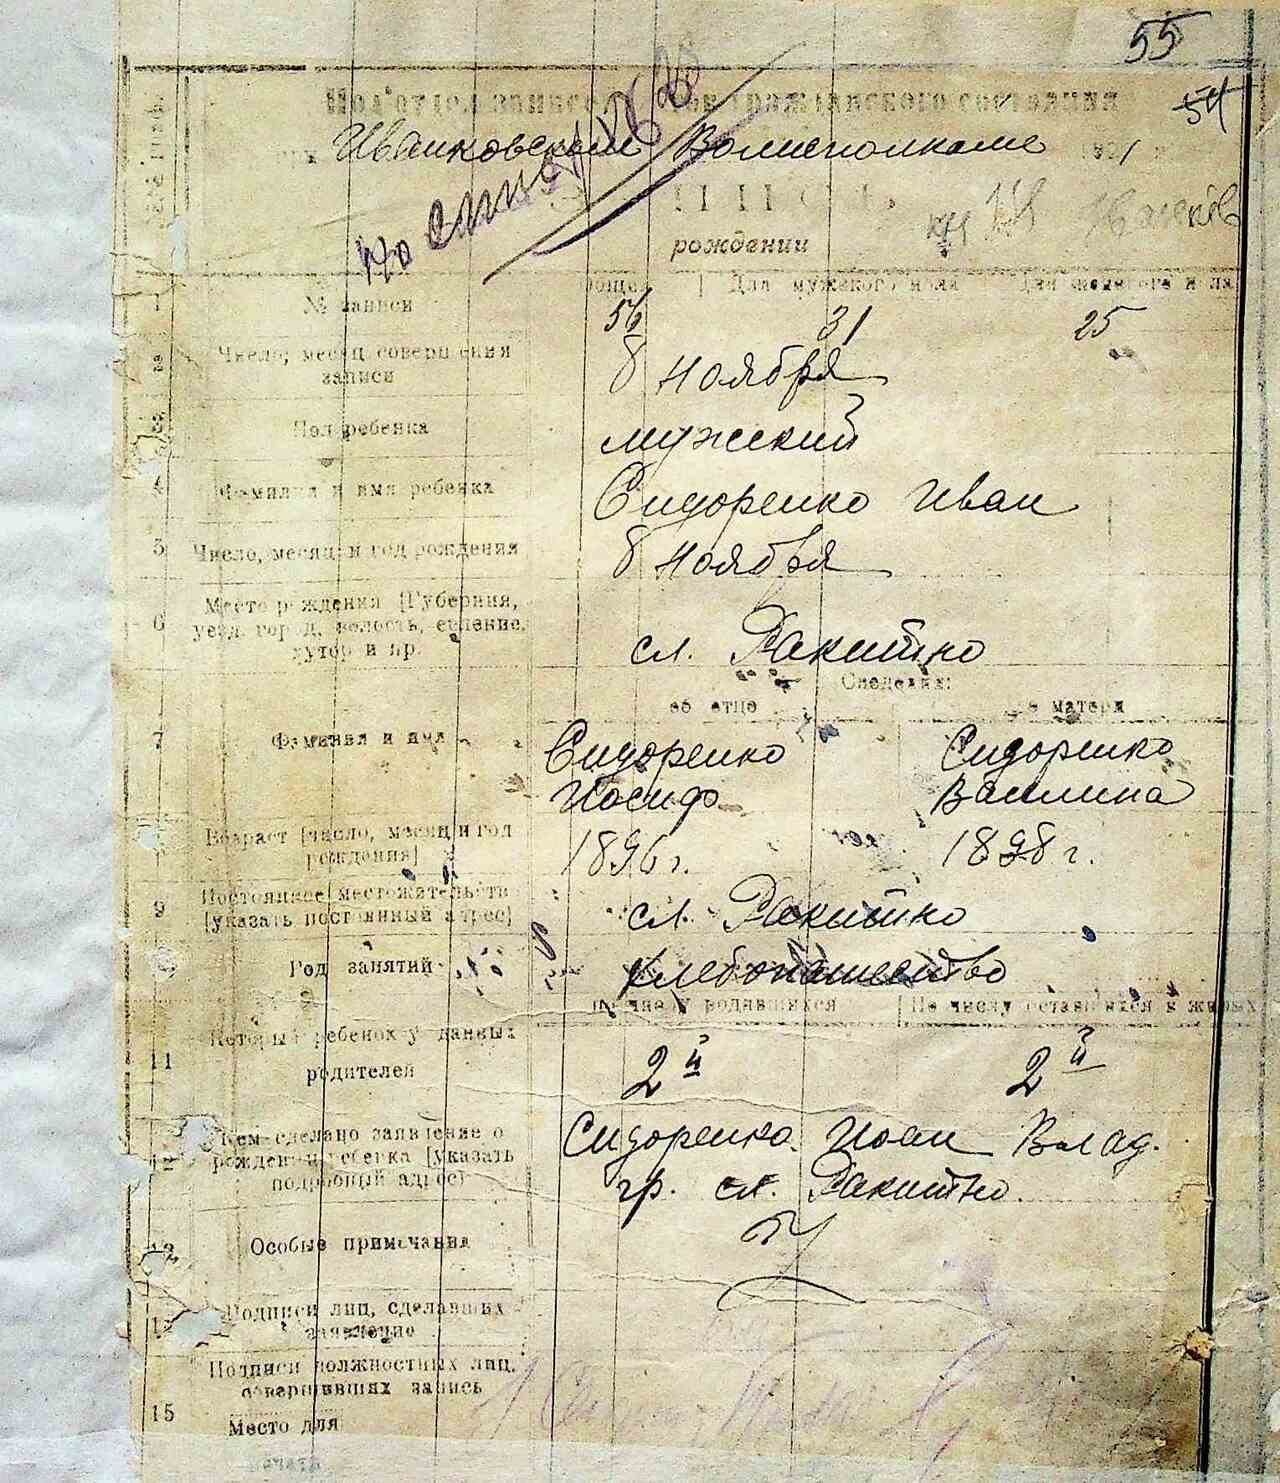 55
54
Под'отдел записе гражданского состояния
Иванковском Волисполкоме
рождении
Для мужского пола Для женского пола
№ записи 56 31 25
Число, месяц совершения записи 8 ноября
3 Пол ребенка мужский
4 Фамилия и имя ребенка Сидоренко Иван
5 Число, месяц и год рождения 8 ноября
6 Место рождения [Губерния, уезд, город, волость, селение, хутор и пр. сл. Ракитно
Сведения:
об отце о матери
7 Фамилия и имя Сидоренко Сидоренко
Иосиф Василина
Возраст [число, месяц и год рождения] 1896 г. 1898 г.
9 Постоянное местожительство [указать постоянный адрес] сл. Ракитно
Род занятий хлебопашество
По числу родившихся По числу оставшихся в живых
11 Который ребенок у данных родителей 2й 2й
12 Кем сделано заявление о рождении ребенка [указать подробный адрес] Сидоренко Иоан Влад.
гр. сл. Ракитно.
13 Особые примечания
Подписи лиц, сделавших заявление
Подписи должностных лиц, совершивших запись
15 Место для
печати